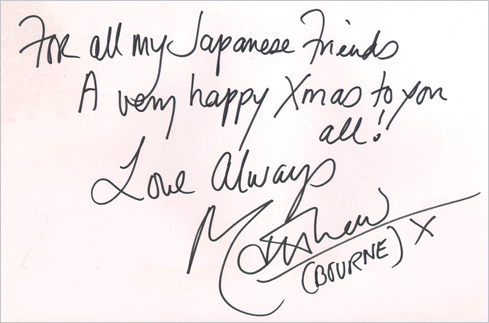 For all my Japanese Friends
A very happy Xmas to you
all!
Love Always
Matthew
(BOURNE) X